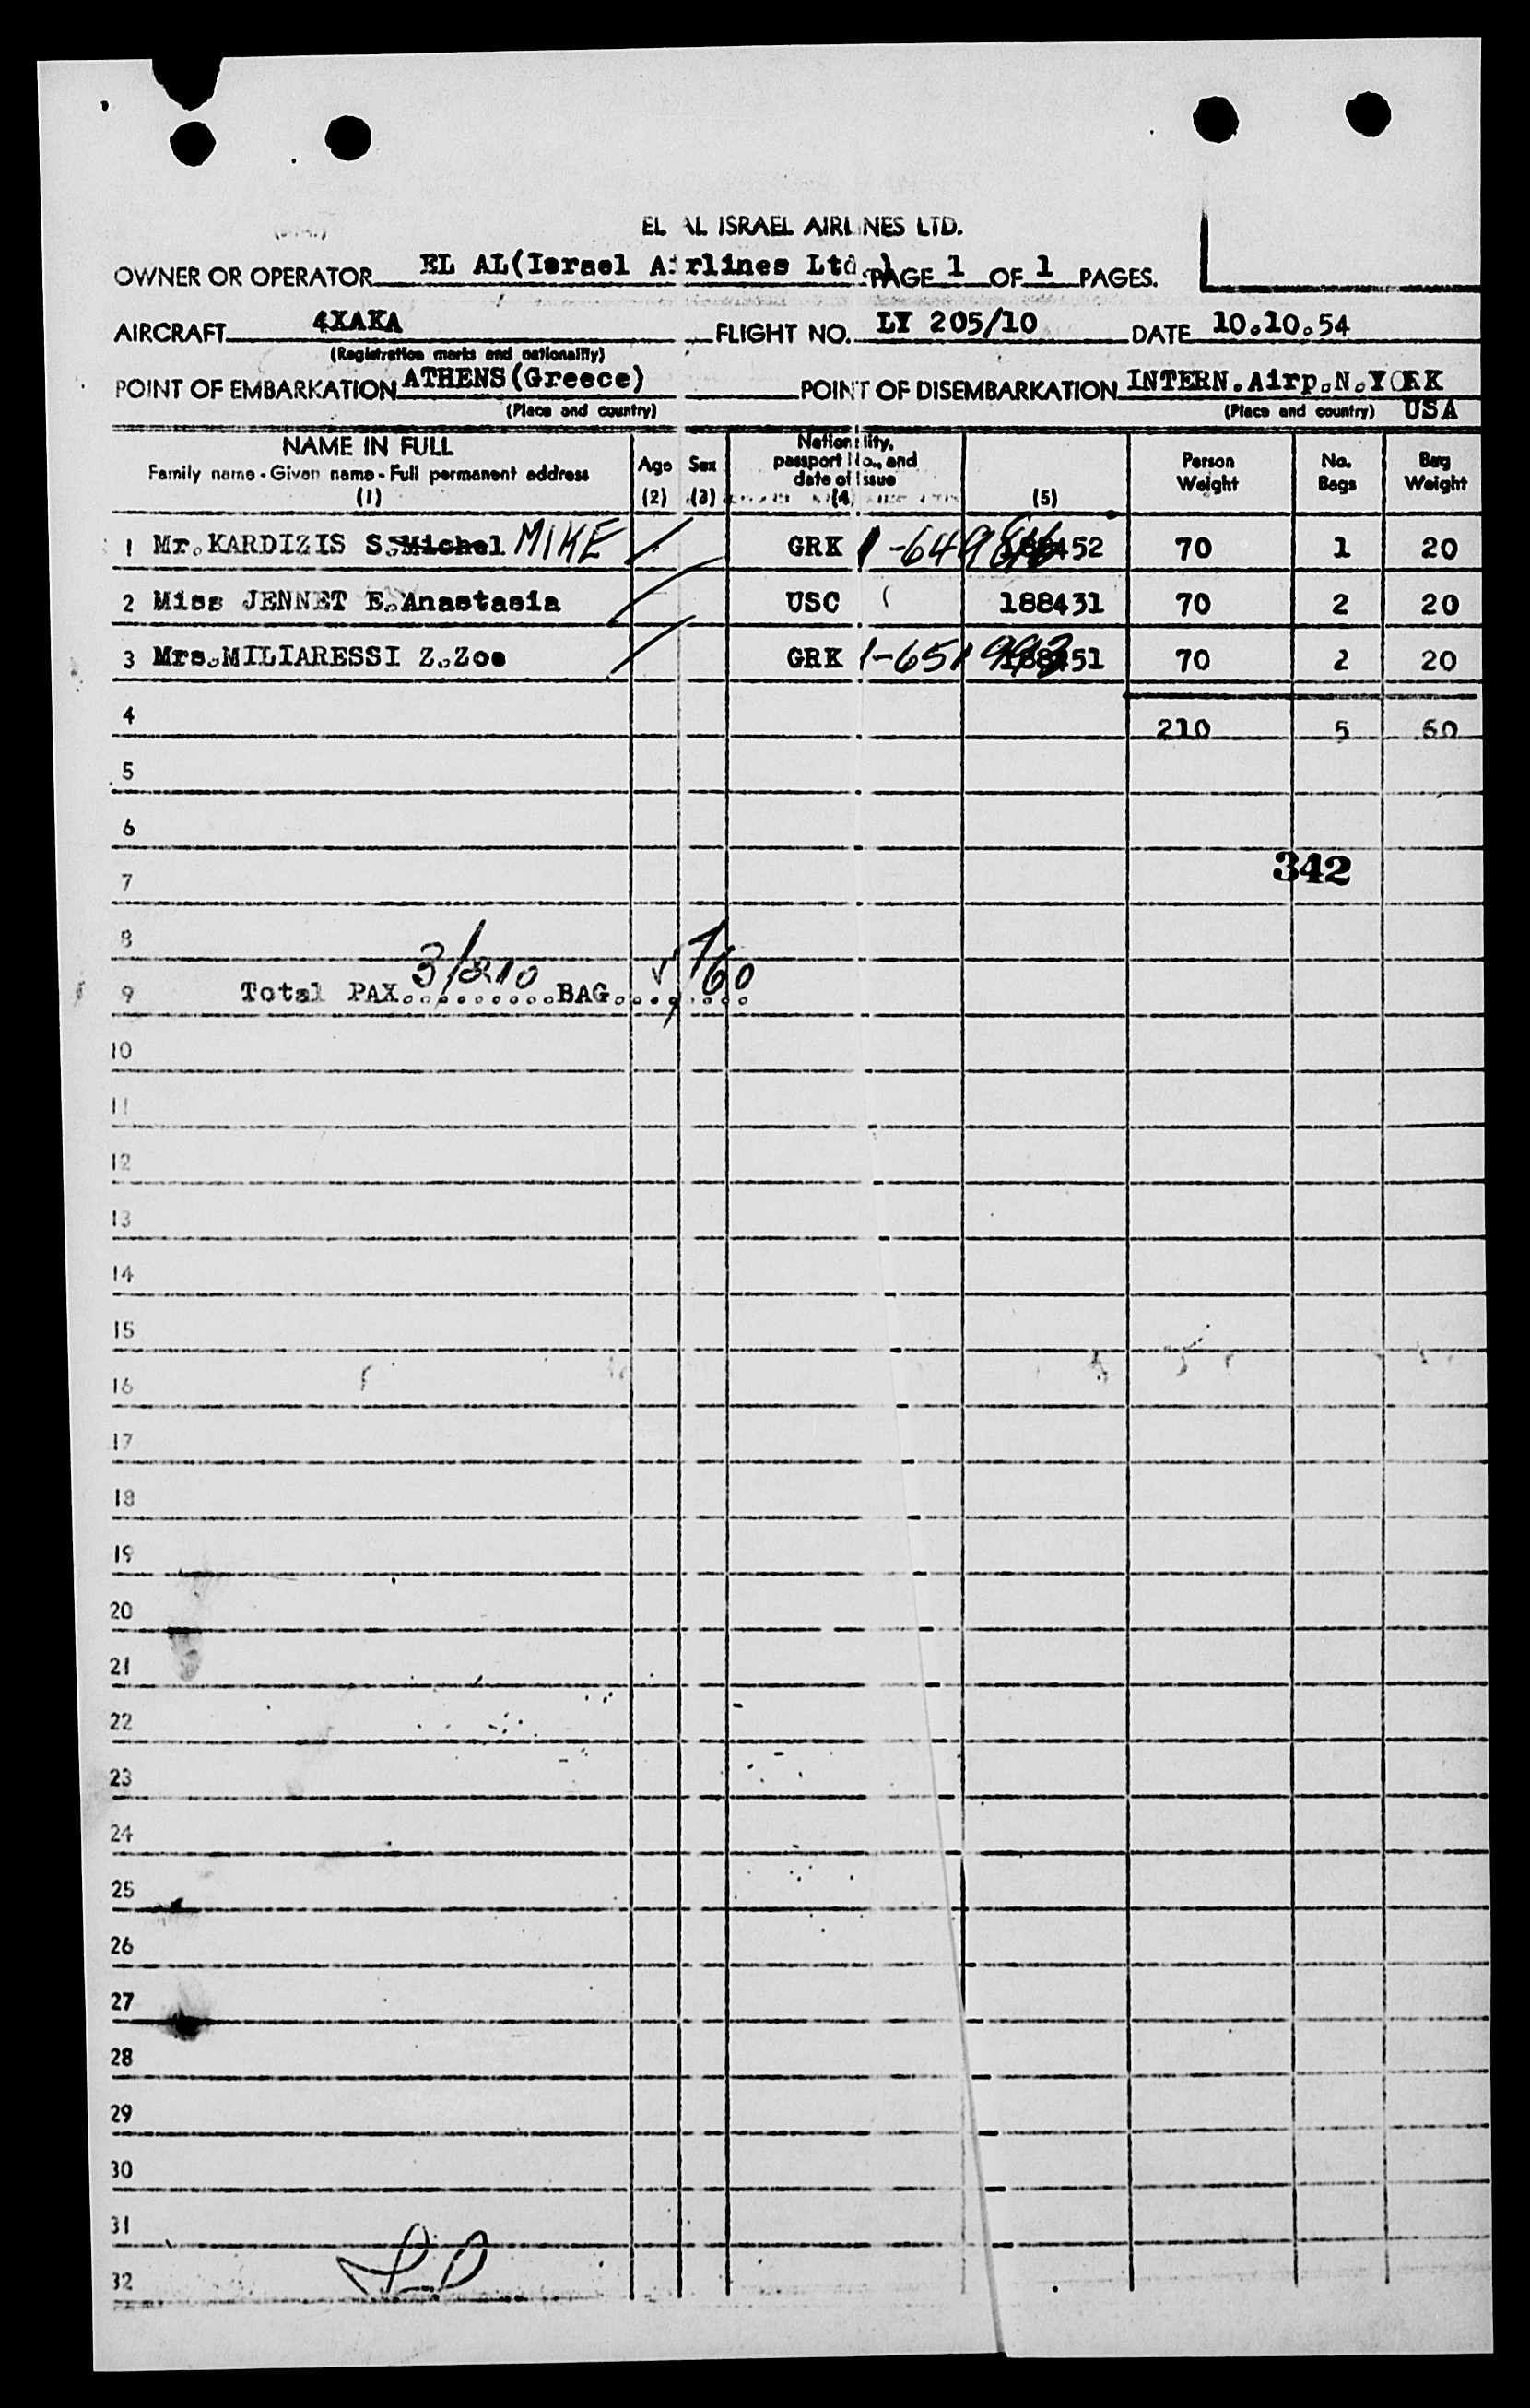 EL AL ISRAEL AIRLINES LTD.
OWNER OR OPERATOR EL AL(Israel Airlines Ltd.) PAGE 1 OF 1 PAGES.
AIRCRAFT 4XAKA FLIGHT NO. LY 205/10 DATE 10.10.54
(Registration marks and nationality)
POINT OF EMBARKATION ATHENS(Greece) POINT OF DISEMBARKATION INTERN.Airp.N.YORK
(Place and country) (Place and country) USA
NAME IN FULL
Family name - Given name - Full permanent address
(1)
Age
(2)
Sex
(3)
Nationality, passport No., and date of issue
(4)
(5)
Person Weight
No. Bags
Bag Weight
1 Mr.KARDIZIS S.Michel MIKE GRK 1-649816 188452 70 1 20
2 Miss JENNET E.Anastasia USC 188431 70 2 20
3 Mrs.MILIARESSI Z.Zoe GRK 1-651993 188451 70 2 20
4 210 5 60
5
6
342
7
8
9 Total PAX 3/210 BAG 5/60
10
11
12
13
14
15
16
17
18
19
20
21
22
23
24
25
26
27
28
29
30
31
32